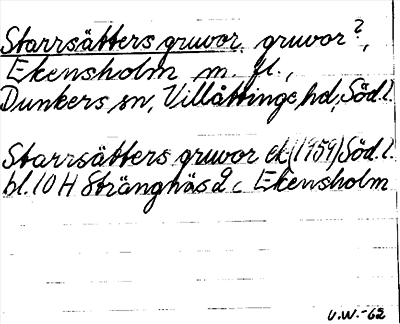 Starrsätters gruvor, gruvor?,
Ekensholm m. fl.,
Dunkers sn, Villåttinge hd, Söd. l.
Starrsätters gruvor ek (1959) Söd. l.
bl. 10 H Strängnäs 2 c Ekensholm
U.W.-62